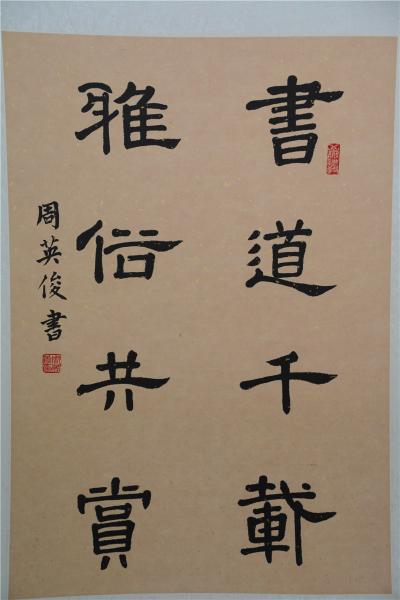 書道千載
雅俗共賞
周英俊書